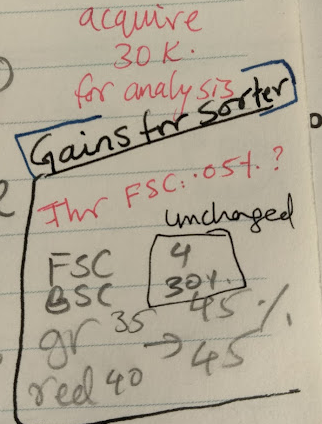 acquire
30 K.
for analysis
Gains for sorter
Thr FSC: .05%. ?
unchanged
FSC 4
BSC 30%.
gr 35 → 45 %
red 40 45